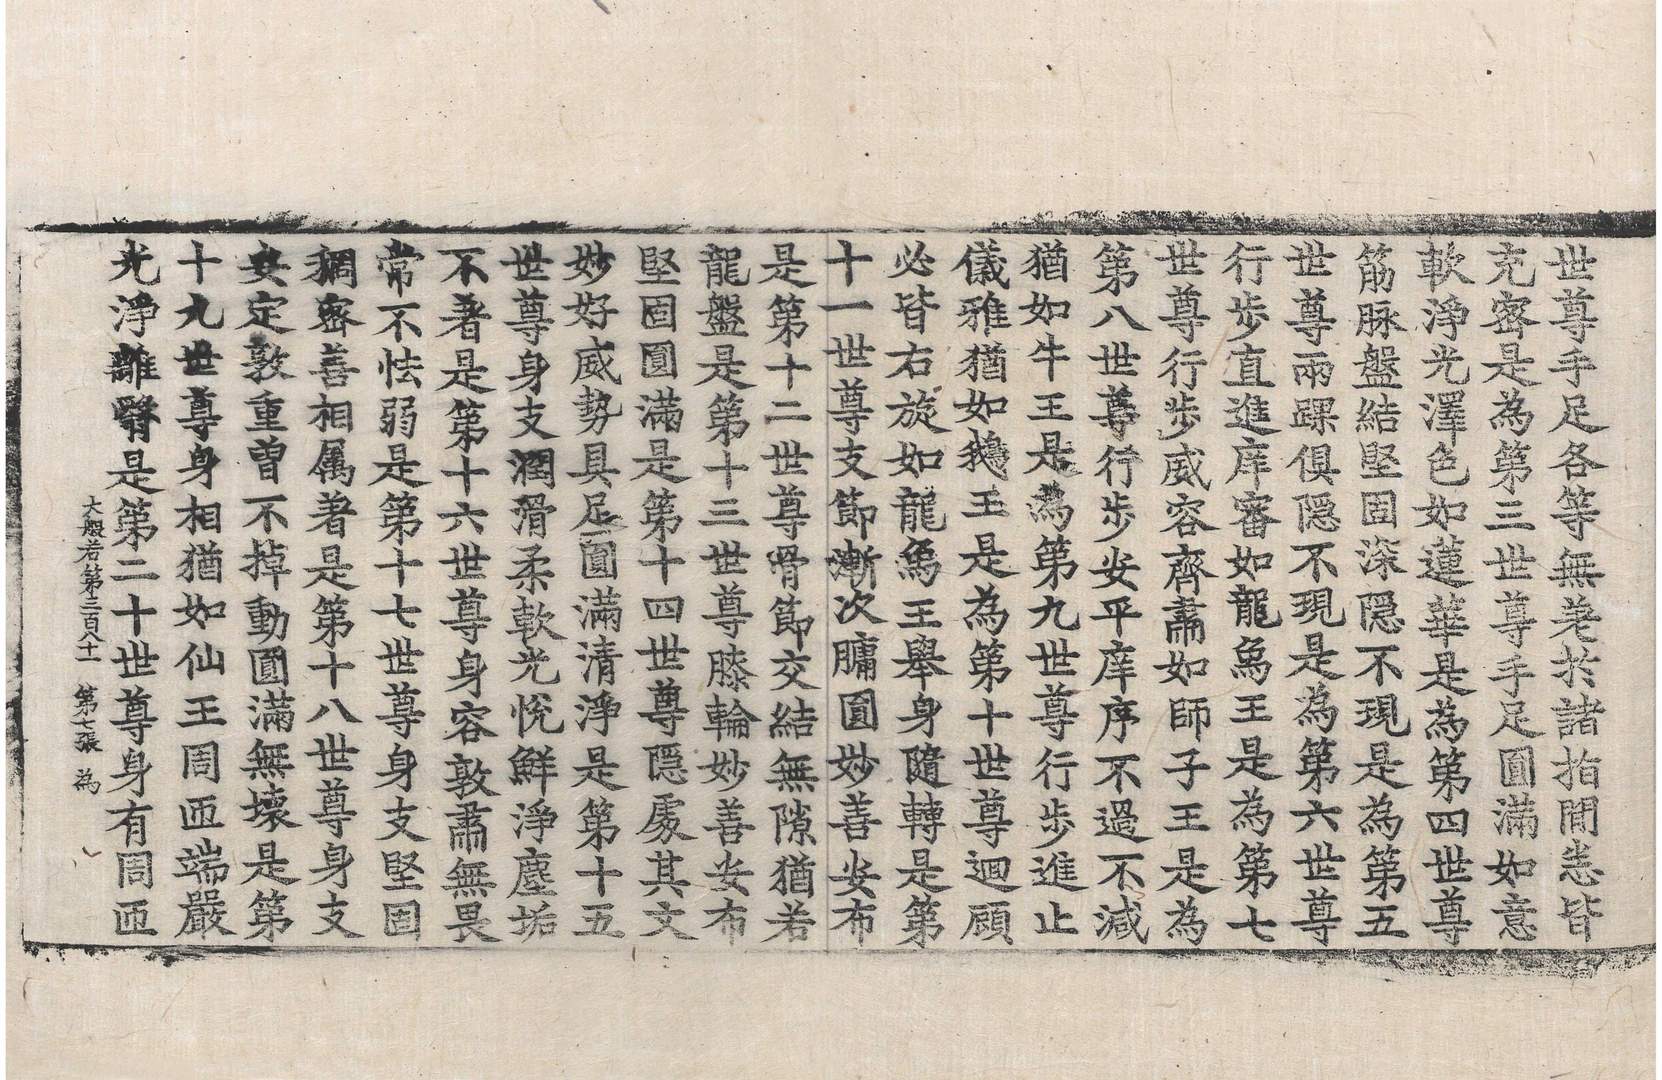 世尊手足各等無差於諸指閒悉皆
充密是為第三世尊手足圓滿如意
軟淨光澤色如蓮華是為第四世尊
筋脉盤結堅固深隱不現是為第五
世尊兩踝俱隱不現是為第六世尊
行步直進庠審如龍象王是為第七
世尊行步威容齊肅如師子王是為
第八世尊行步安平庠序不過不減
猶如牛王是為第九世尊行步進止
儀雅猶如鵝王是為第十世尊迴顧
必皆右旋如龍象王舉身隨轉是第
十一世尊支節漸次𦟛圓妙善安布
是第十二世尊骨節交結無隙猶若
龍盤是第十三世尊膝輪妙善安布
堅固圓滿是第十四世尊隱處其文
妙好威勢具足圓滿清淨是第十五
世尊身支潤滑柔軟光悅鮮淨塵垢
不著是第十六世尊身容敦肅無畏
常不怯弱是第十七世尊身支堅固
稠密善相属著是第十八世尊身支
安定敦重曾不掉動圓滿無壞是第
十九世尊身相猶如仙王周匝端嚴
光淨離翳是第二十世尊身有周匝
大般若第三百八十一 第七張 為